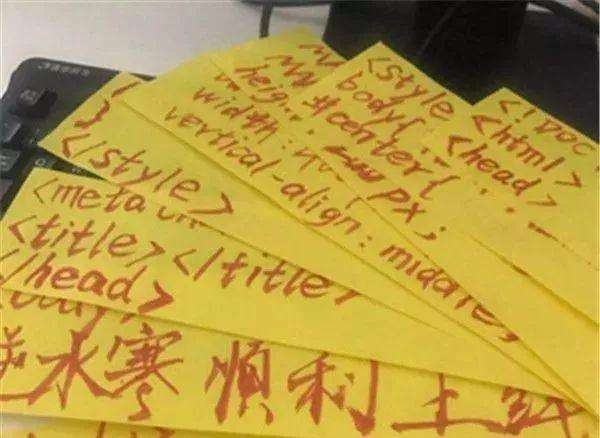 <!DOC
<html>
<head>
<style
body{
#center{
px;
heig
width:
vertical-align: middle;
}
</style>
<meta
<title></title>
</head>
水寒 順利上